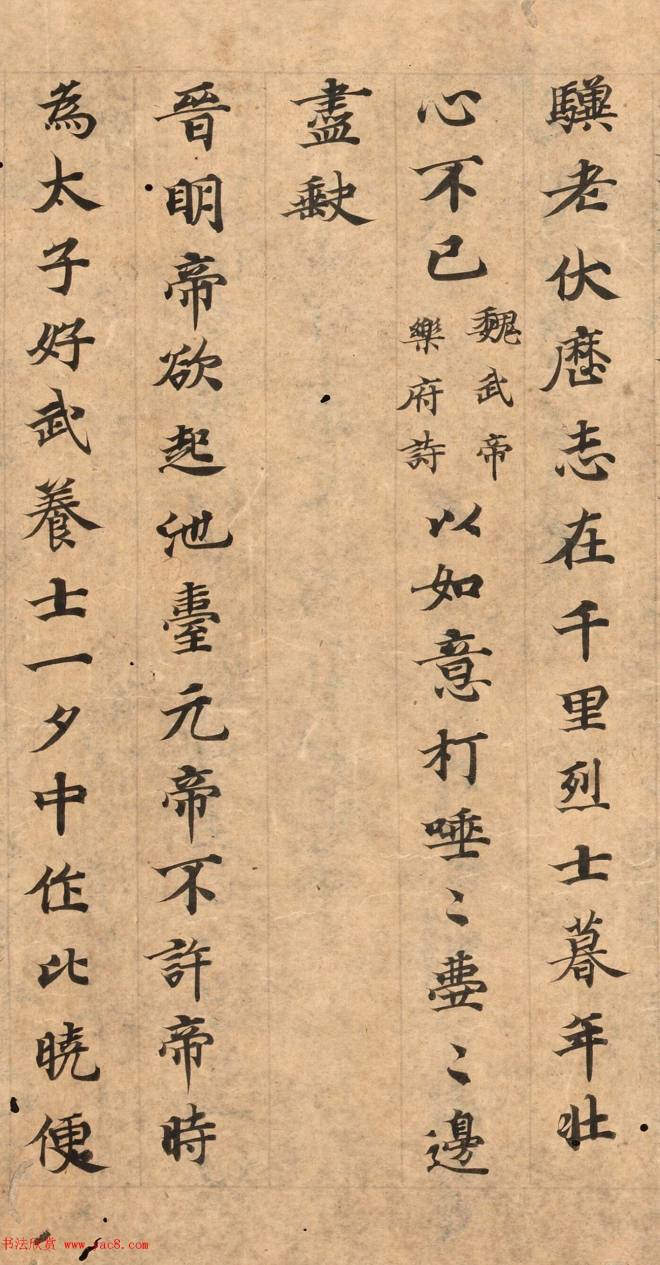 驥老伏歷志在千里烈士暮年壯
心不已
魏武帝
樂府詩
以如意打唾〻壺〻邊
盡缺
晉明帝欲起池臺元帝不許帝時
為太子好武養士一夕中作比曉便
书法欣赏 www.yac8.com